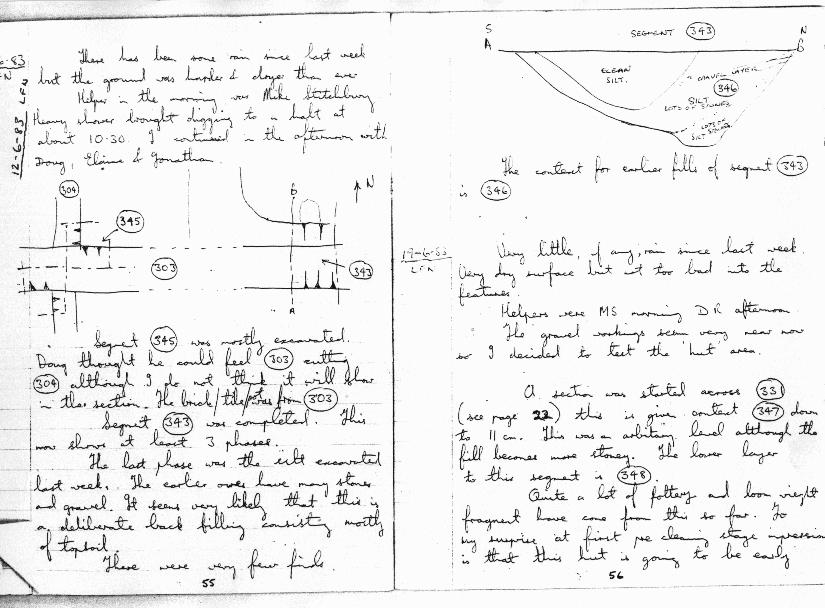 12-6-83 LFN
There has been some rain since last week
but the ground was harder & dryer than ever
Helper in the morning was Mike Stitchbury
Heavy shower brought digging to a halt at
about 10.30. I continued in the afternoon with
Doug, Elaine & Jonathan.
304
345
B
N
303
343
A
Segment 345 was mostly excavated.
Doug thought he could feel 303 cutting
304 although I do not think it will show
in the section. The brick/tile/pot was from 303
Segment 343 was completed. This
now shows at least 3 phases.
The last phase was the silt excavated
last week. The earlier ones have many stones
and gravel. It seems very likely that this is
a deliberate back filling consisting mostly
of topsoil.
There were very few finds.
55
S
A
SEGMENT 343
N
B
CLEAN
SILT.
GRAVEL LAYER
346
SILT
LOTS OF STONES
LOTS OF
SILT STONES
The context for earlier fills of segment 343
is 346
19-6-83
LFN
Very little, if any, rain since last week.
Very dry surface but not too bad into the
features.
Helpers were MS morning DR afternoon
The gravel workings seem very near now
so I decided to test the hut area.
A section was started across 331
(see page 22) this is given context 347 down
to 11 cm. This was an arbitrary level although the
fill becomes more stoney. The lower layer
to this segment is 348.
Quite a lot of pottery and loom weight
fragment have come from this so far. To
my surprise at first pre cleaning stage impression
is that this hut is going to be early
56